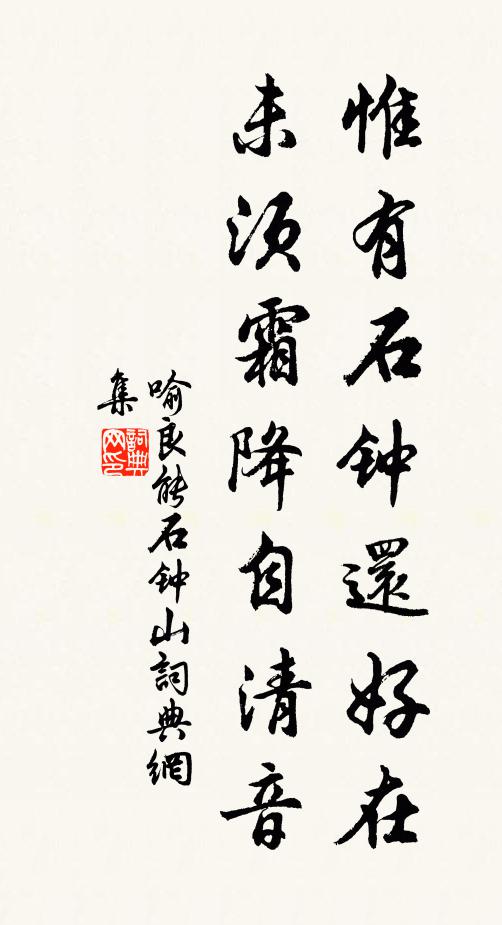 惟有石钟還好在
未須霜降自清音
喻良能石钟山詞典網
集
詞典网印